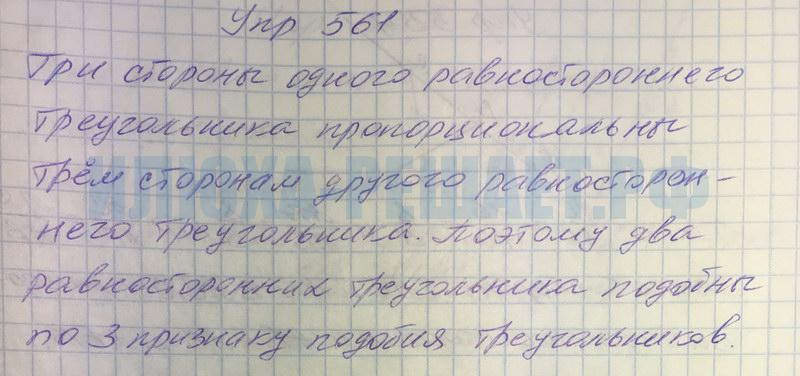 Упр 561
Три стороны одного равностороннего
треугольника пропорциональны
трём сторонам другого равносторон-
ИЛЮХА-РЕШАЕТ.РФ
него треугольника. Поэтому два
равносторонних треугольника подобны
по 3 признаку подобия треугольников.